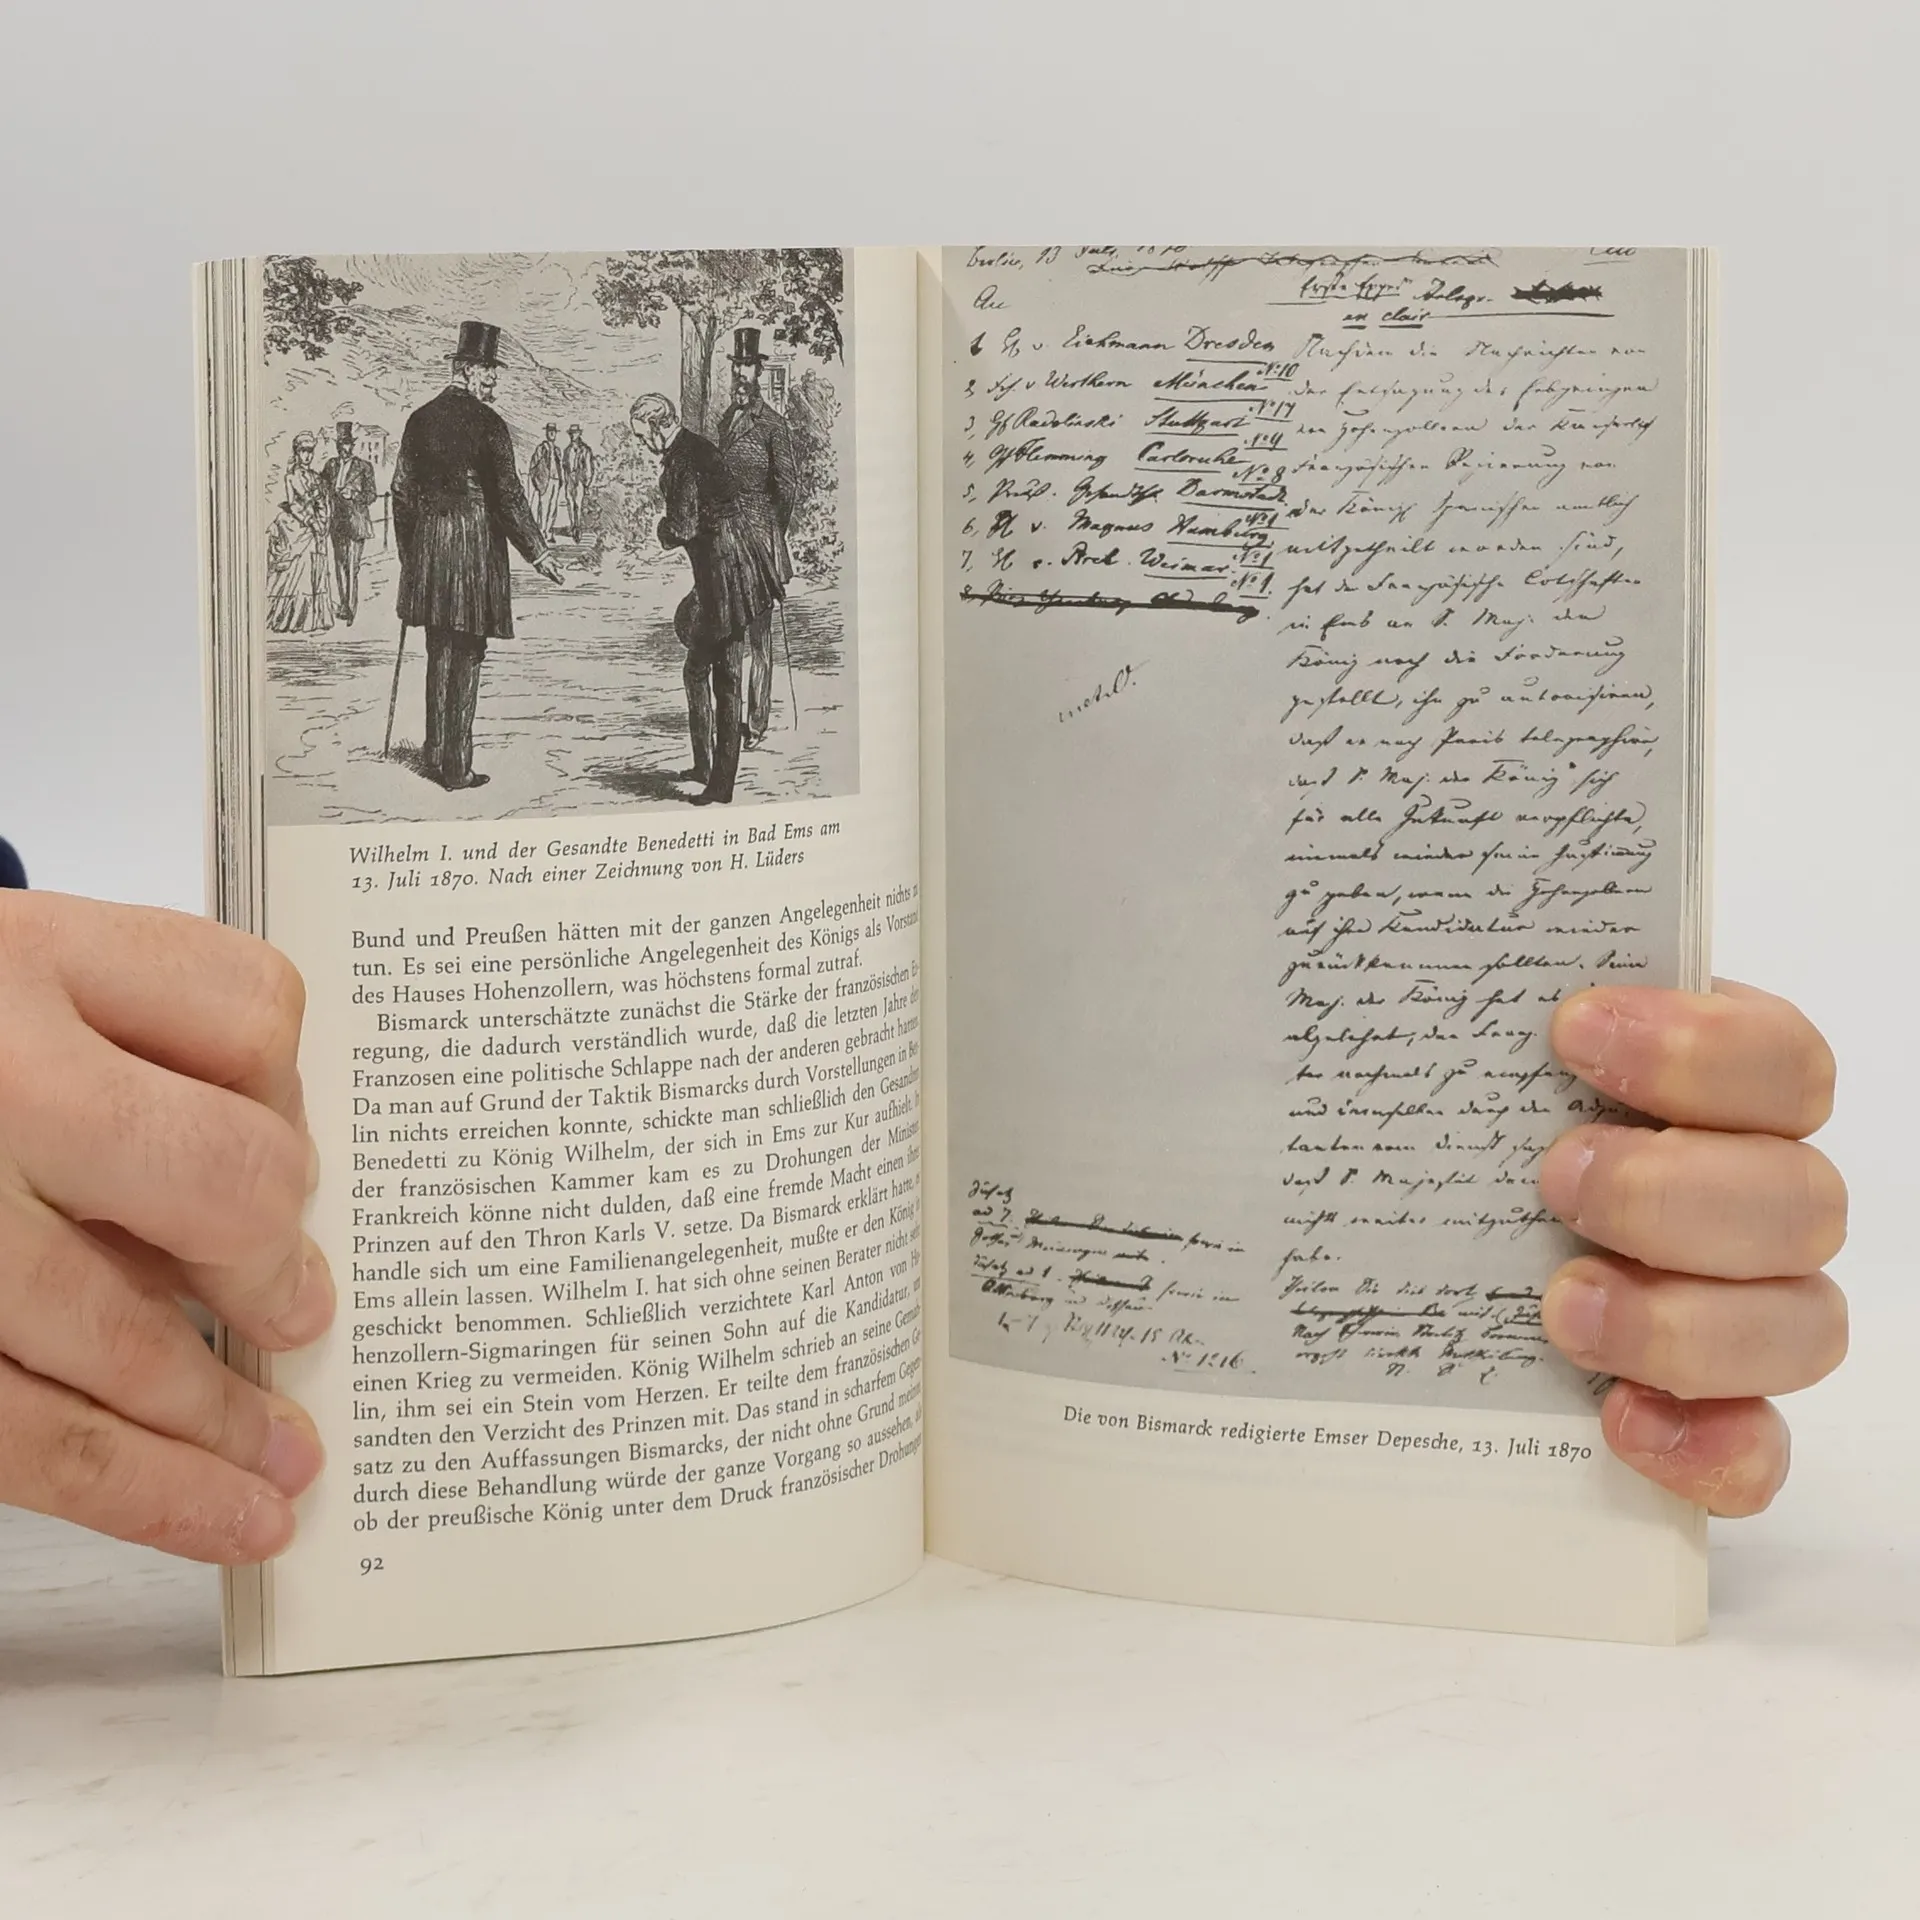 Wilhelm I. und der Gesandte Benedetti in Bad Ems am
13. Juli 1870. Nach einer Zeichnung von H. Lüders
Bund und Preußen hätten mit der ganzen Angelegenheit nichts
tun. Es sei eine persönliche Angelegenheit des Königs als Vorstand
des Hauses Hohenzollern, was höchstens formal zutraf.
Bismarck unterschätzte zunächst die Stärke der französischen
regung, die dadurch verständlich wurde, daß die letzten Jahre den
Franzosen eine politische Schlappe nach der anderen gebracht hatten.
Da man auf Grund der Taktik Bismarcks durch Vorstellungen in Ber-
lin nichts erreichen konnte, schickte man schließlich den Gesandten
Benedetti zu König Wilhelm, der sich in Ems zur Kur aufhielt. In
der französischen Kammer kam es zu Drohungen der Minister
Frankreich könne nicht dulden, daß eine fremde Macht einen ihrer
Prinzen auf den Thron Karls V. setze. Da Bismarck erklärt hatte, es
handle sich um eine Familienangelegenheit, mußte er den König in
Ems allein lassen. Wilhelm I. hat sich ohne seinen Berater nicht sehr
geschickt benommen. Schließlich verzichtete Karl Anton von Ho-
henzollern-Sigmaringen für seinen Sohn auf die Kandidatur, um
einen Krieg zu vermeiden. König Wilhelm schrieb an seine Gemah-
lin, ihm sei ein Stein vom Herzen. Er teilte dem französischen Ge-
sandten den Verzicht des Prinzen mit. Das stand in scharfem Gegen-
satz zu den Auffassungen Bismarcks, der nicht ohne Grund meinte,
durch diese Behandlung würde der ganze Vorgang so aussehen, als
ob der preußische König unter dem Druck französischer Drohungen
92
Berlin, 13 Juli, 1870
An
en clair
1 H v. Eichmann Dresden
2 Frh. v Werthern München No 10
3, Gf Radolinski Stuttgart No 17
4, Gf Flemming Carlsruhe No 9
5, Preuß. Gesandtsch. Darmstadt No 8
6, H v. Magnus Hamburg No 1
7, H v. Weimar No 1
Nachdem die Nachrichten von
der Entsagung des Erbprinzen
von Hohenzollern der Kaiserlich
Französischen Regierung von
der Königl Spanischen amtlich
mitgetheilt worden sind,
hat der Französische Botschafter
in Ems an S. Maj. den
König noch die Forderung
gestellt, ihn zu autorisiren,
daß er nach Paris telegraphire,
daß S. Maj. der König sich
für alle Zukunft verpflichte,
niemals wieder seine Zustimmung
zu geben, wenn die Hohenzollern
auf ihre Kandidatur wieder
zurückkommen sollten. Seine
Maj. der König hat es
abgelehnt, den Franz.
ter nochmals zu
und demselben durch den
tanten vom Dienst
daß S. Majestät
nichts weiter
habe.
Die von Bismarck redigierte Emser Depesche, 13. Juli 1870